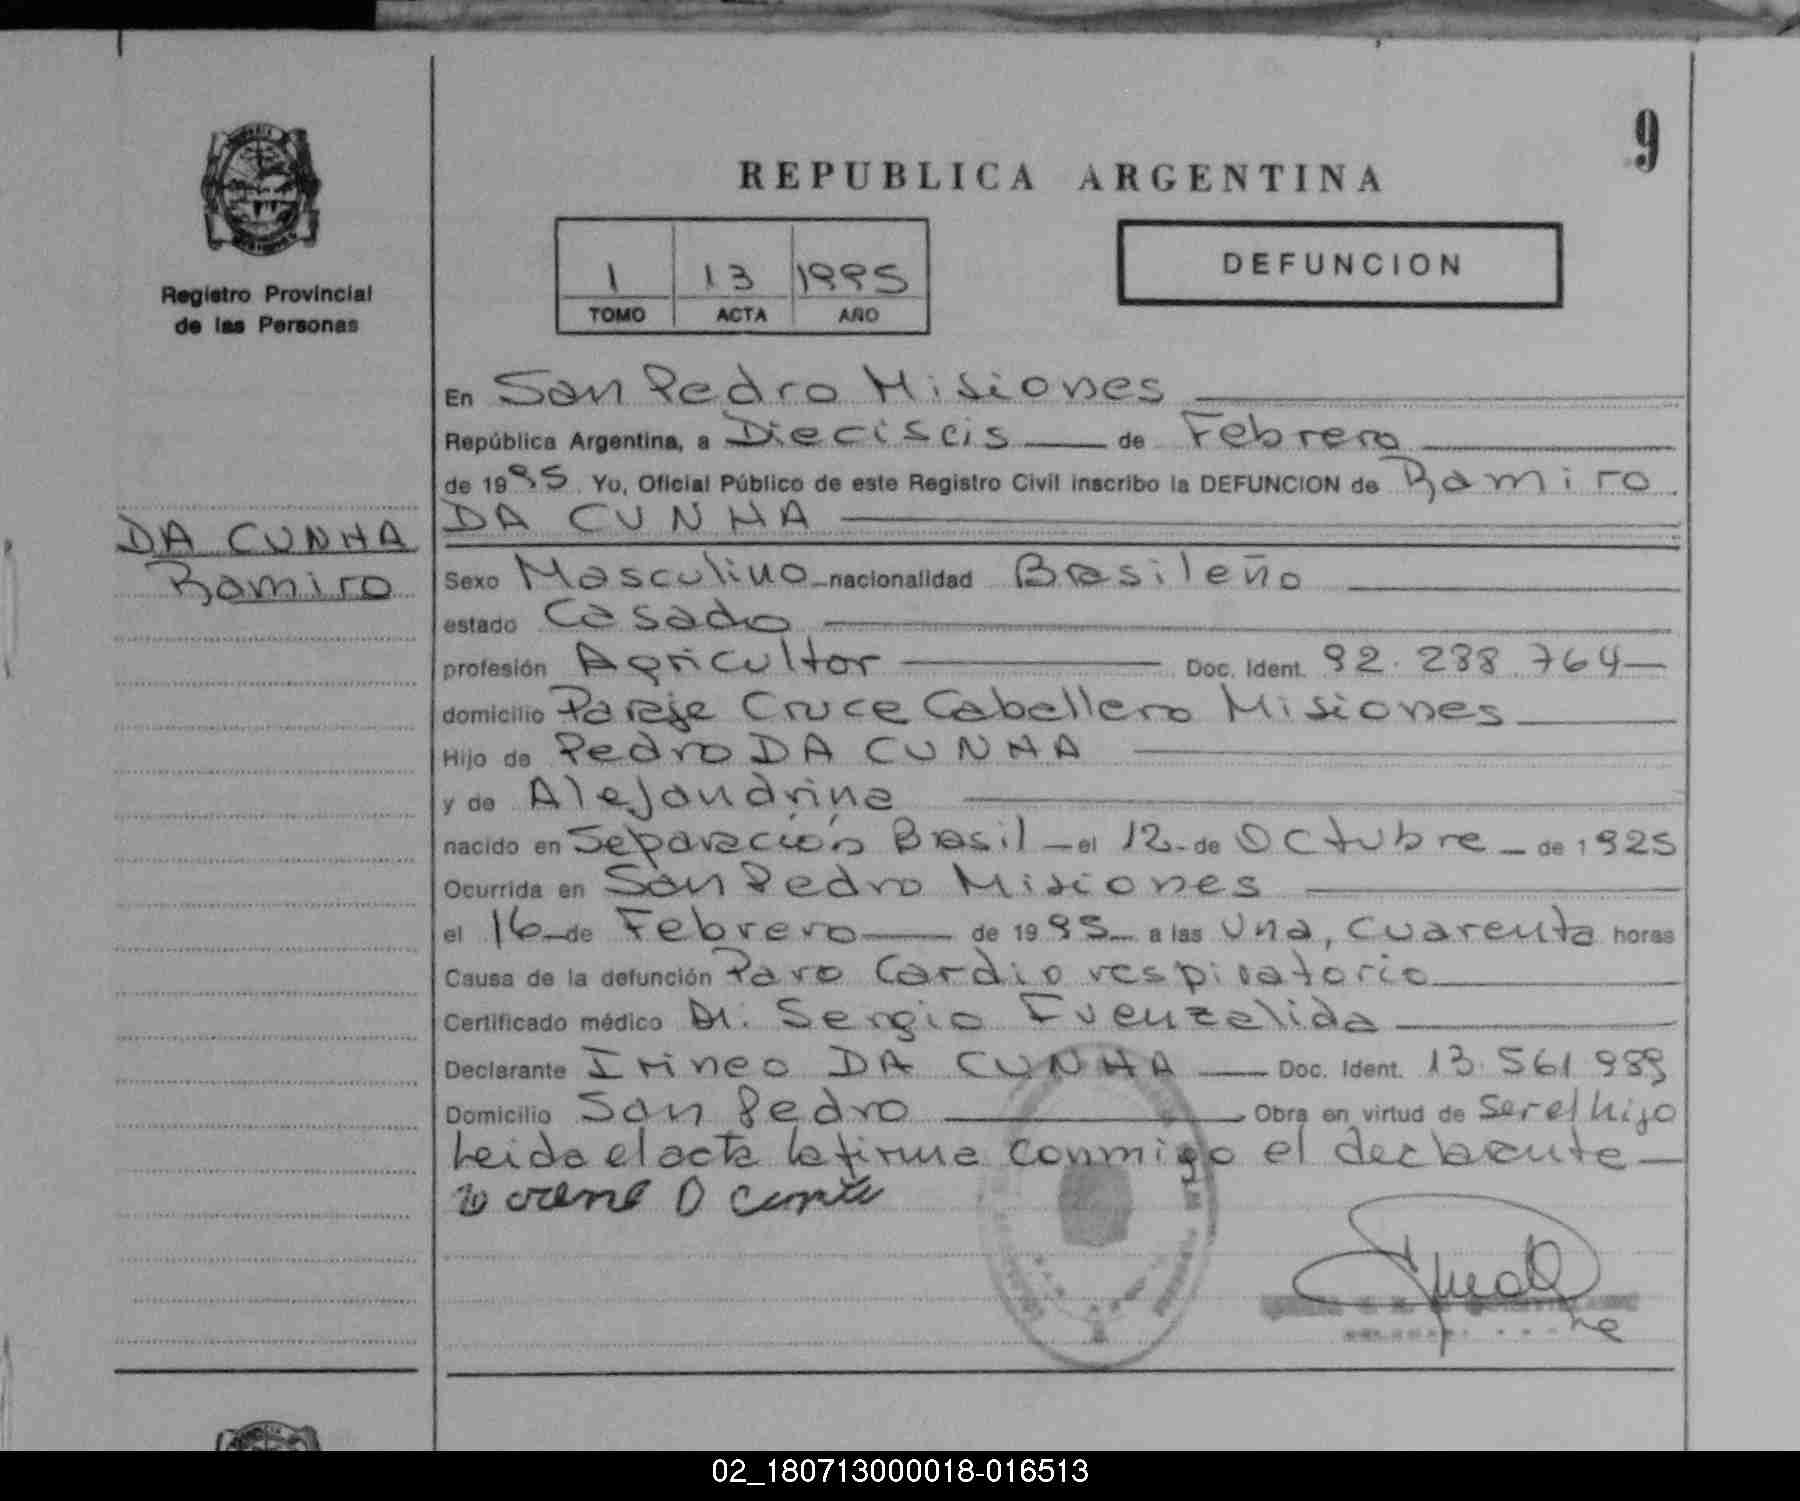 9
REPUBLICA ARGENTINA
1 13 1995
TOMO ACTA AÑO
DEFUNCION
Registro Provincial
de las Personas
DA CUNHA
Ramiro
En San Pedro Misiones
República Argentina, a Dieciseis de Febrero
de 1995 Yo, Oficial Público de este Registro Civil inscribo la DEFUNCION de Ramiro
DA CUNHA
Sexo Masculino nacionalidad Brasileño
estado Casado
profesión Agricultor Doc. Ident. 92.288.764
domicilio Paraje Cruce Caballero Misiones
Hijo de Pedro DA CUNHA
y de Alejandrina
nacido en Separación Brasil el 12 de Octubre de 1925
Ocurrida en San Pedro Misiones
el 16 de Febrero de 1995 a las Una, cuarenta horas
Causa de la defunción Paro Cardio respiratorio
Certificado médico Dr. Sergio Fuenzalida
Declarante Irineo DA CUNHA Doc. Ident. 13.561.989
Domicilio San Pedro Obra en virtud de Ser el hijo
Leida el acta la firma conmigo el declarante
02_180713000018-016513